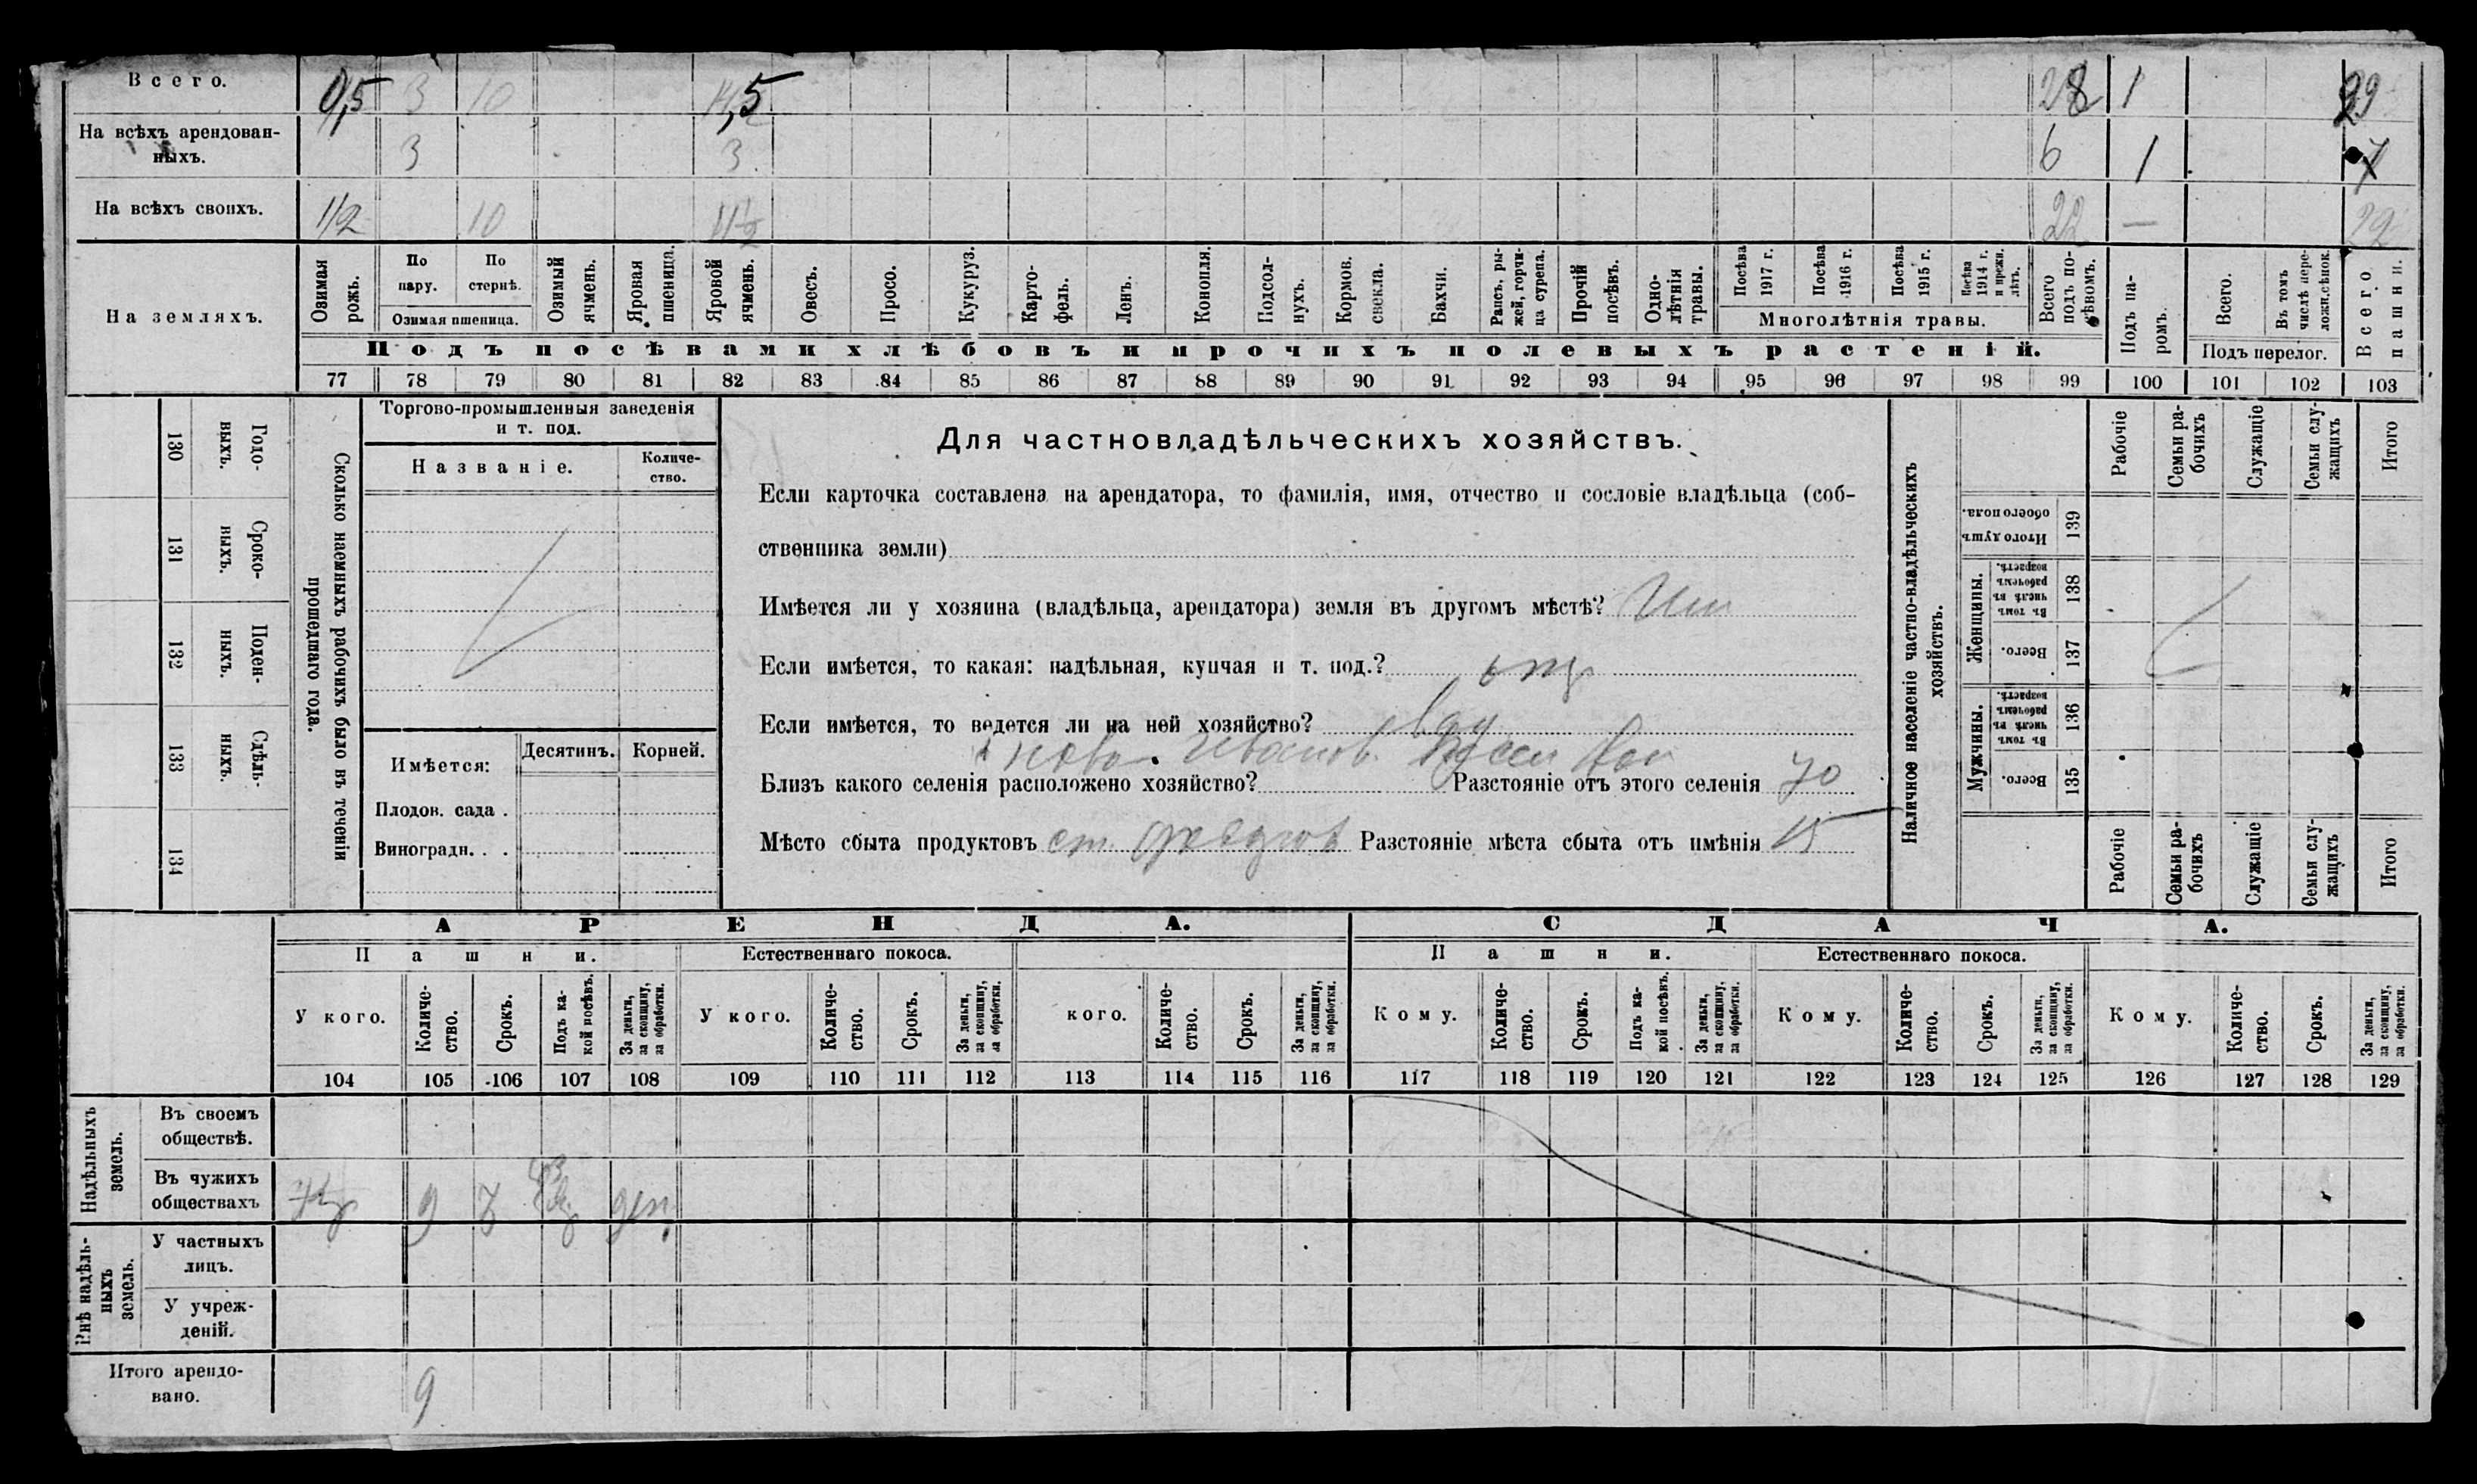 Всего. 0,5 3 10 ,5 28 1 29
На всѣхъ арендован-
ныхъ. 3 3 6 1 7
На всѣхъ своихъ. 1/2 10 11 1/2 22 — 22
На земляхъ.
Озимая рожь.
По пару.
По стернѣ.
Озимая пшеница.
Озимый ячмень.
Яровая пшеница.
Яровой ячмень.
Овесъ.
Просо.
Кукуруз.
Карто-
фель.
Ленъ.
Конопля.
Подсол-
нухъ.
Кормов. свекла.
Бахчи.
Рапсъ, ры-
жей, горчи-
ца сурепа.
Прочій посѣвъ.
Одно-
лѣтнія травы.
Посѣва 1917 г.
Посѣва 1916 г.
Посѣва 1915 г.
Посѣва 1914 г. и прежн. лѣтъ.
Многолѣтнія травы.
Всего подъ по-
сѣвомъ.
Подъ па-
ромъ.
Всего.
Въ томъ числѣ пере-
ложн.сѣнок.
Подъ перелог.
Всего пашни.
Подъ посѣвами хлѣбовъ и прочихъ полевыхъ растеній.
77 78 79 80 81 82 83 84 85 86 87 88 89 90 91 92 93 94 95 96 97 98 99 100 101 102 103
130 Годо-
ныхъ.
131 Сроко-
ныхъ.
132 Поден-
ныхъ.
133 Сдѣль-
ныхъ.
134
Сколько наемныхъ рабочихъ было въ теченіи
прошедшаго года.
Торгово-промышленныя заведенія
и т. под.
Названіе.
Количе-
ство.
Имѣется: Десятинъ. Корней.
Плодов. сада .
Виноградн. . .
Для частновладѣльческихъ хозяйствъ.
Если карточка составлена на арендатора, то фамилія, имя, отчество и сословіе владѣльца (соб-
ственника земли)
Имѣется ли у хозяина (владѣльца, арендатора) земля въ другомъ мѣстѣ?
Если имѣется, то какая: надѣльная, купчая и т. под.?
Если имѣется, то ведется ли на ней хозяйство?
Близъ какого селенія расположено хозяйство? Разстояніе отъ этого селенія
Мѣсто сбыта продуктовъ ст. Разстояніе мѣста сбыта отъ имѣнія 15
Наличное населеніе частно-владѣльческихъ
хозяйствъ.
Рабочіе
Семьи ра-
бочихъ
Служащіе
Семьи слу-
жащихъ
Итого
Итого душъ обоего пола. 139
Женщины.
Въ томъ числѣ въ рабочемъ возрастѣ. 138
Всего. 137
Мужчины.
Въ томъ числѣ въ рабочемъ возрастѣ. 136
Всего. 135
Рабочіе
Семьи ра-
бочихъ
Служащіе
Семьи слу-
жащихъ
Итого
АРЕНДА. СДАЧА.
Пашни. Естественнаго покоса. Пашни. Естественнаго покоса.
У кого.
Количе-
ство.
Срокъ.
Подъ ка-
кой посѣвъ.
За деньги,
за скопщину,
за обработки.
У кого.
Количе-
ство.
Срокъ.
За деньги,
за скопщину,
за обработки.
кого.
Количе-
ство.
Срокъ.
За деньги,
за скопщину,
за обработки.
Кому.
Количе-
ство.
Срокъ.
Подъ ка-
кой посѣвъ.
За деньги,
за скопщину,
за обработки.
Кому.
Количе-
ство.
Срокъ.
За деньги,
за скопщину,
за обработки.
Кому.
Количе-
ство.
Срокъ.
За деньги,
за скопщину,
за обработки.
104 105 106 107 108 109 110 111 112 113 114 115 116 117 118 119 120 121 122 123 124 125 126 127 128 129
Надѣльныхъ
земель.
Въ своемъ
обществѣ.
Въ чужихъ
обществахъ 9 ден.
Внѣ надѣль-
ныхъ
земель.
У частныхъ
лицъ.
У учреж-
деній.
Итого арендо-
вано. 9